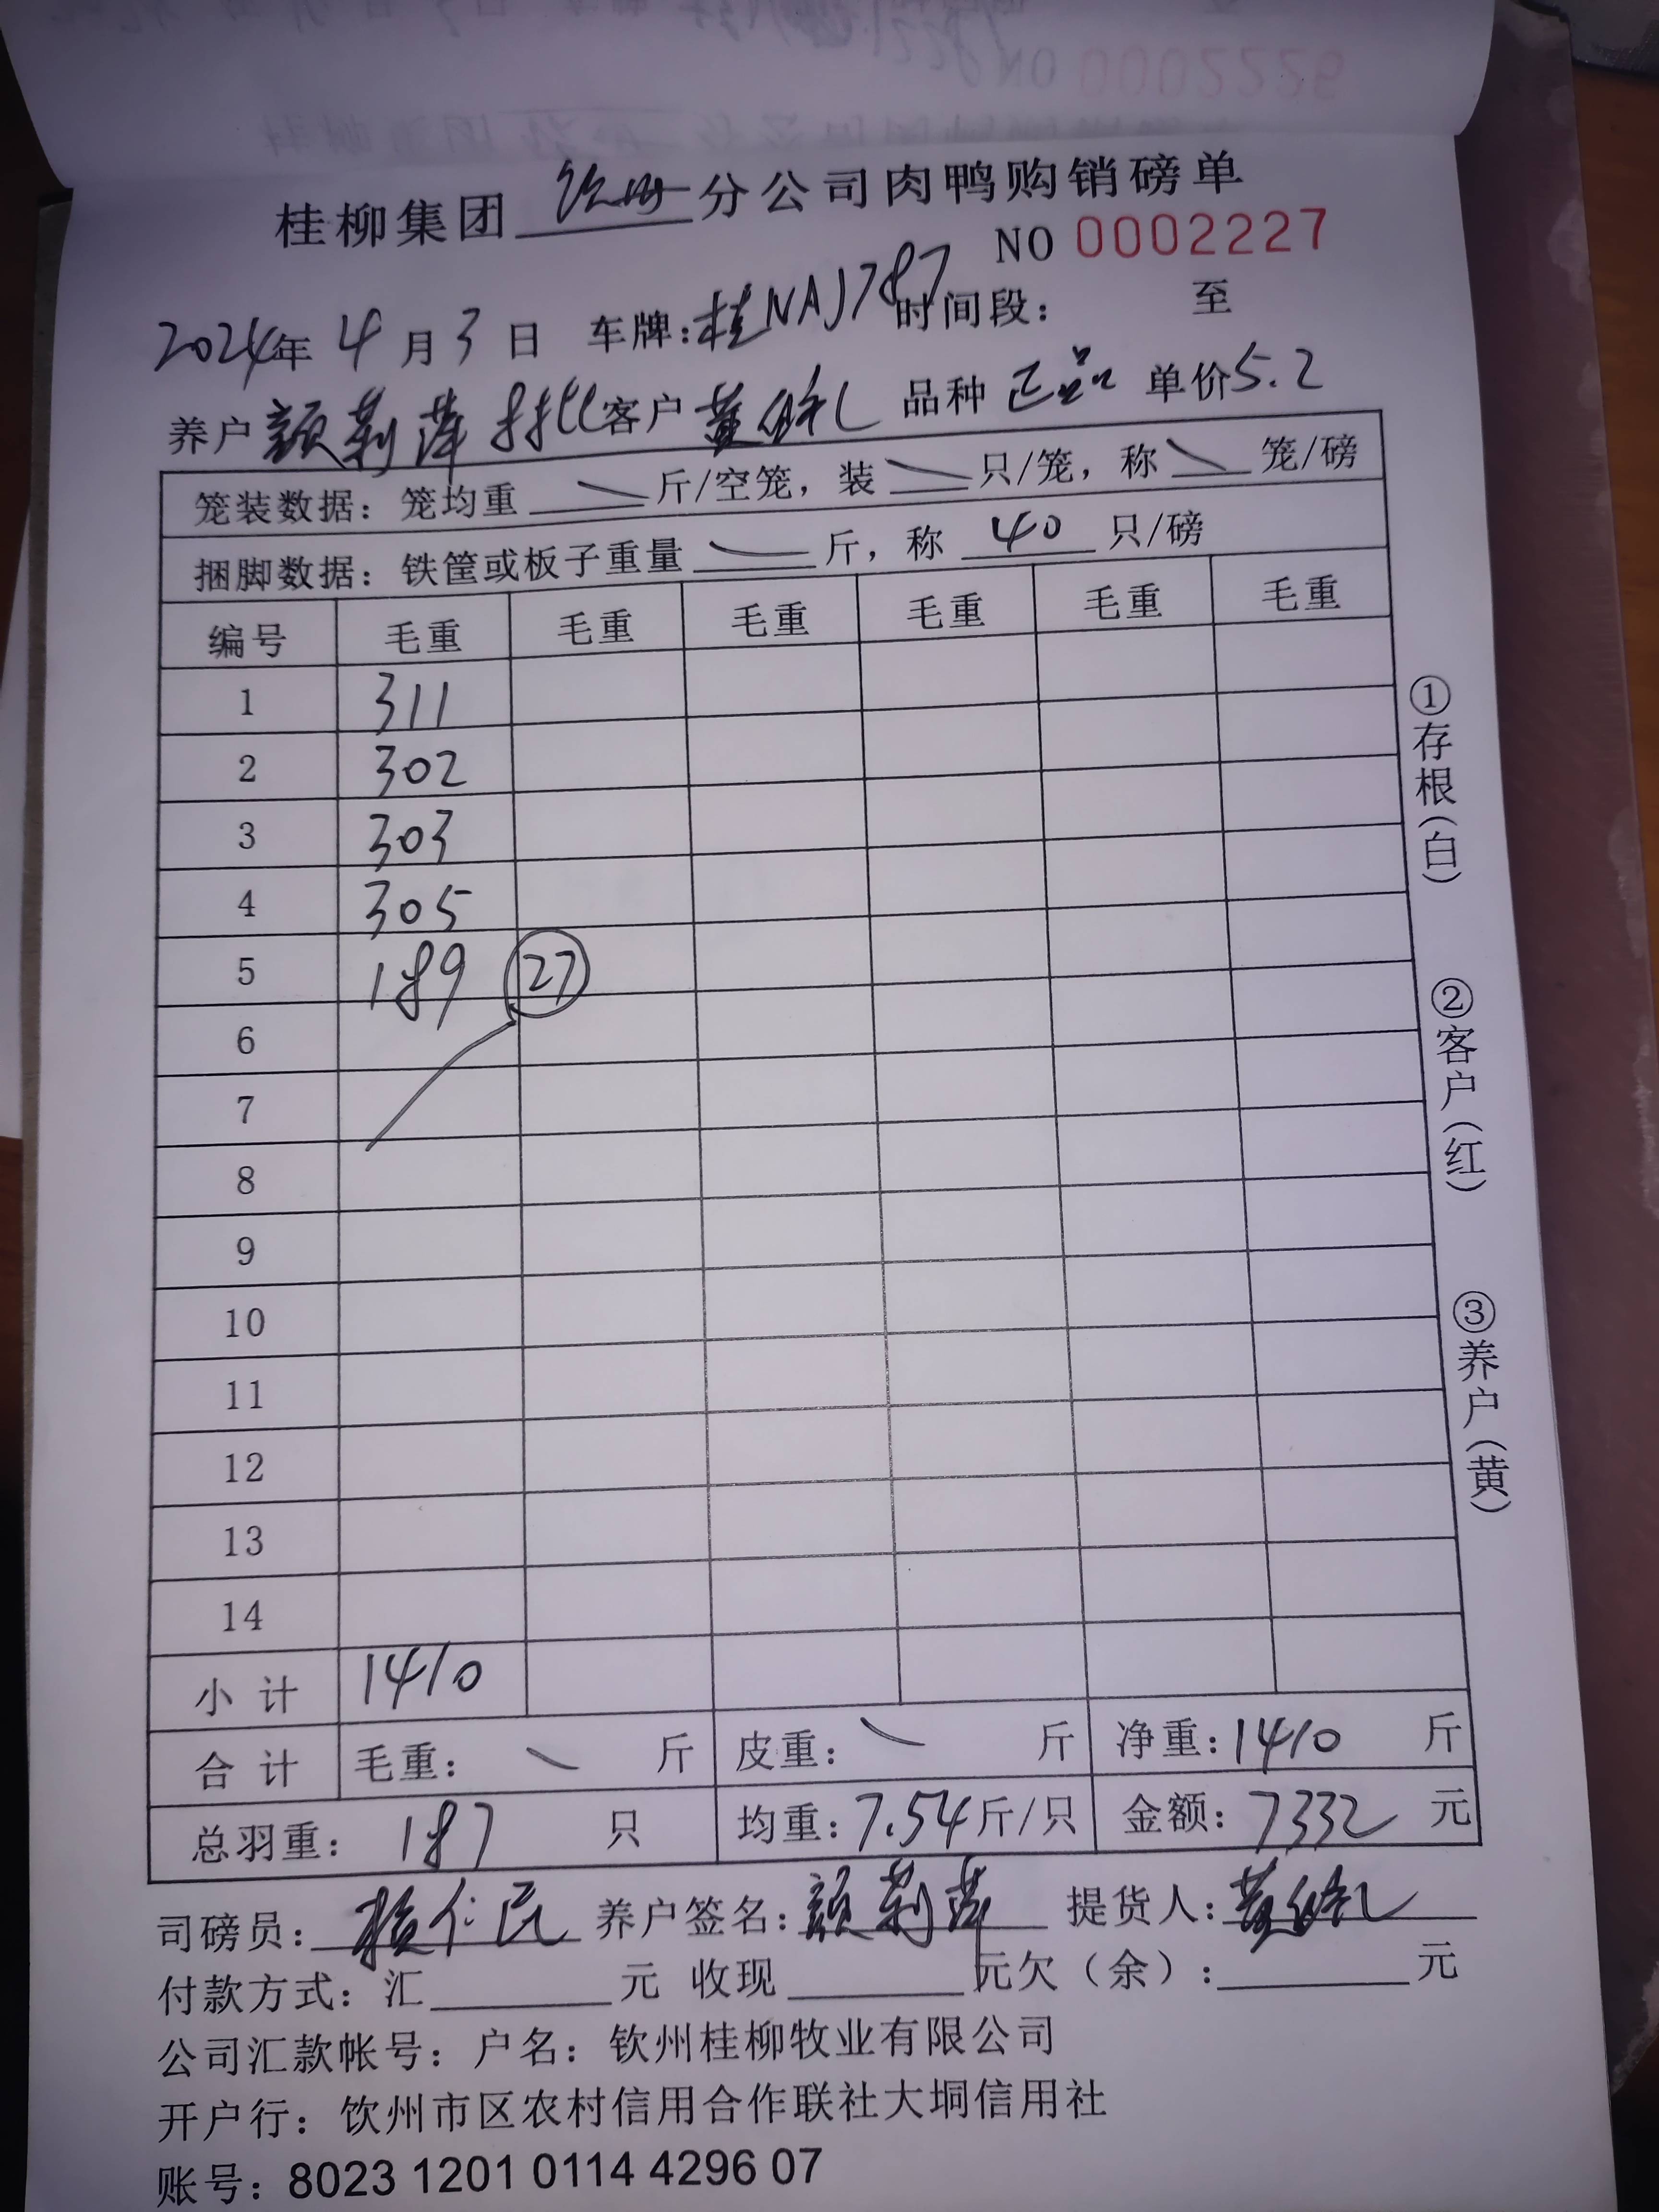 桂柳集团 钦州 分公司肉鸭购销磅单
NO 0002227
2024年 4 月 3 日 车牌:桂NAJ787 时间段: 至
养户 颜莉萍 客户 黄 品种 正品 单价5.2
笼装数据: 笼均重 斤/空笼, 装 只/笼, 称 笼/磅
捆脚数据: 铁筐或板子重量 斤, 称 40 只/磅
编号 毛重 毛重 毛重 毛重 毛重 毛重
1 311
2 302
3 303
4 305
5 189 27
6
7
8
9
10
11
12
13
14
小计 1410
合计 毛重: 斤 皮重: 斤 净重:1410 斤
总羽重: 187 只 均重:7.54斤/只 金额:7332 元
司磅员: 仁民 养户签名:颜莉萍 提货人:黄
付款方式: 汇 元 收现 元欠(余): 元
公司汇款帐号: 户名: 钦州桂柳牧业有限公司
开户行: 钦州市区农村信用合作联社大垌信用社
账号: 8023 1201 0114 4296 07
①存根(白)
②客户(红)
③养户(黄)